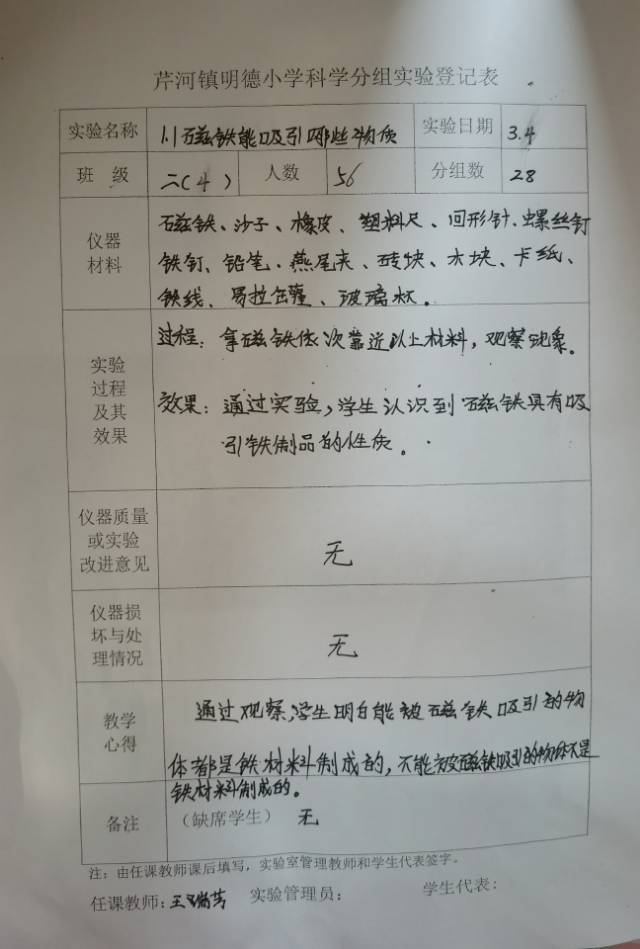 芹河镇明德小学科学分组实验登记表
实验名称 1.1磁铁能吸引哪些物质 实验日期 3.4
班 级 二(4) 人数 56 分组数 28
仪器材料 磁铁、沙子、橡皮、塑料尺、回形针、螺丝钉
铁钉、铅笔、燕尾夹、砖块、木块、卡纸、
铁线、易拉罐、玻璃杯。
实验过程及其效果 过程：拿磁铁依次靠近以上材料，观察现象。
效果：通过实验，学生认识到磁铁具有吸
引铁制品的性质。
仪器质量或实验改进意见 无
仪器损坏与处理情况 无
教学心得 通过观察，学生明白能被磁铁吸引的物
体都是铁材料制成的，不能被磁铁吸引的物体不是
铁材料制成的。
备注 （缺席学生） 无
注：由任课教师课后填写，实验室管理教师和学生代表签字。
任课教师：王瑞芳 实验管理员： 学生代表：